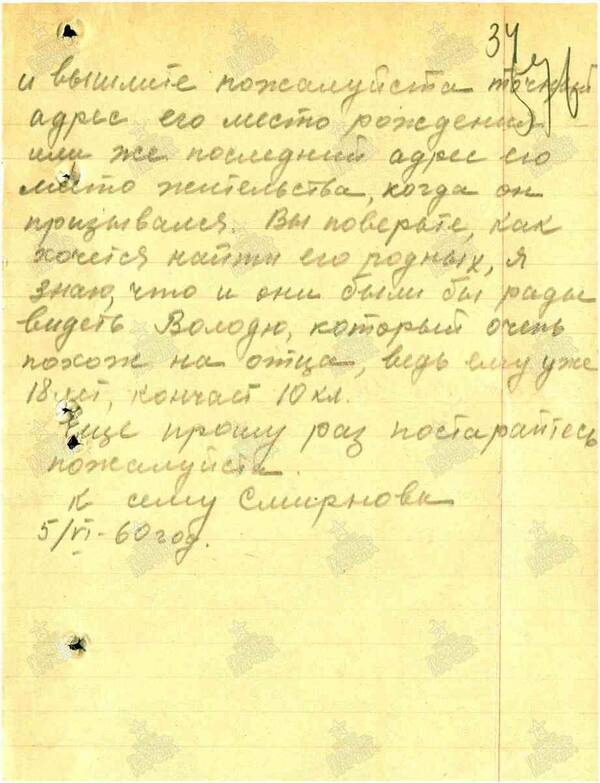 34
и вышлите пожалуйста точный
адрес его место рождения
или же последний адрес его
место жительства, когда он
призывался. Вы поверьте, как
хочется найти его родных, я
знаю, что и они были бы рады
видеть Володю, который очень
похож на отца, ведь ему уже
18 лет, кончает 10 кл.
Еще прошу раз постарайтесь
пожалуйста.
К сему Смирнова
5/VI-60 год.